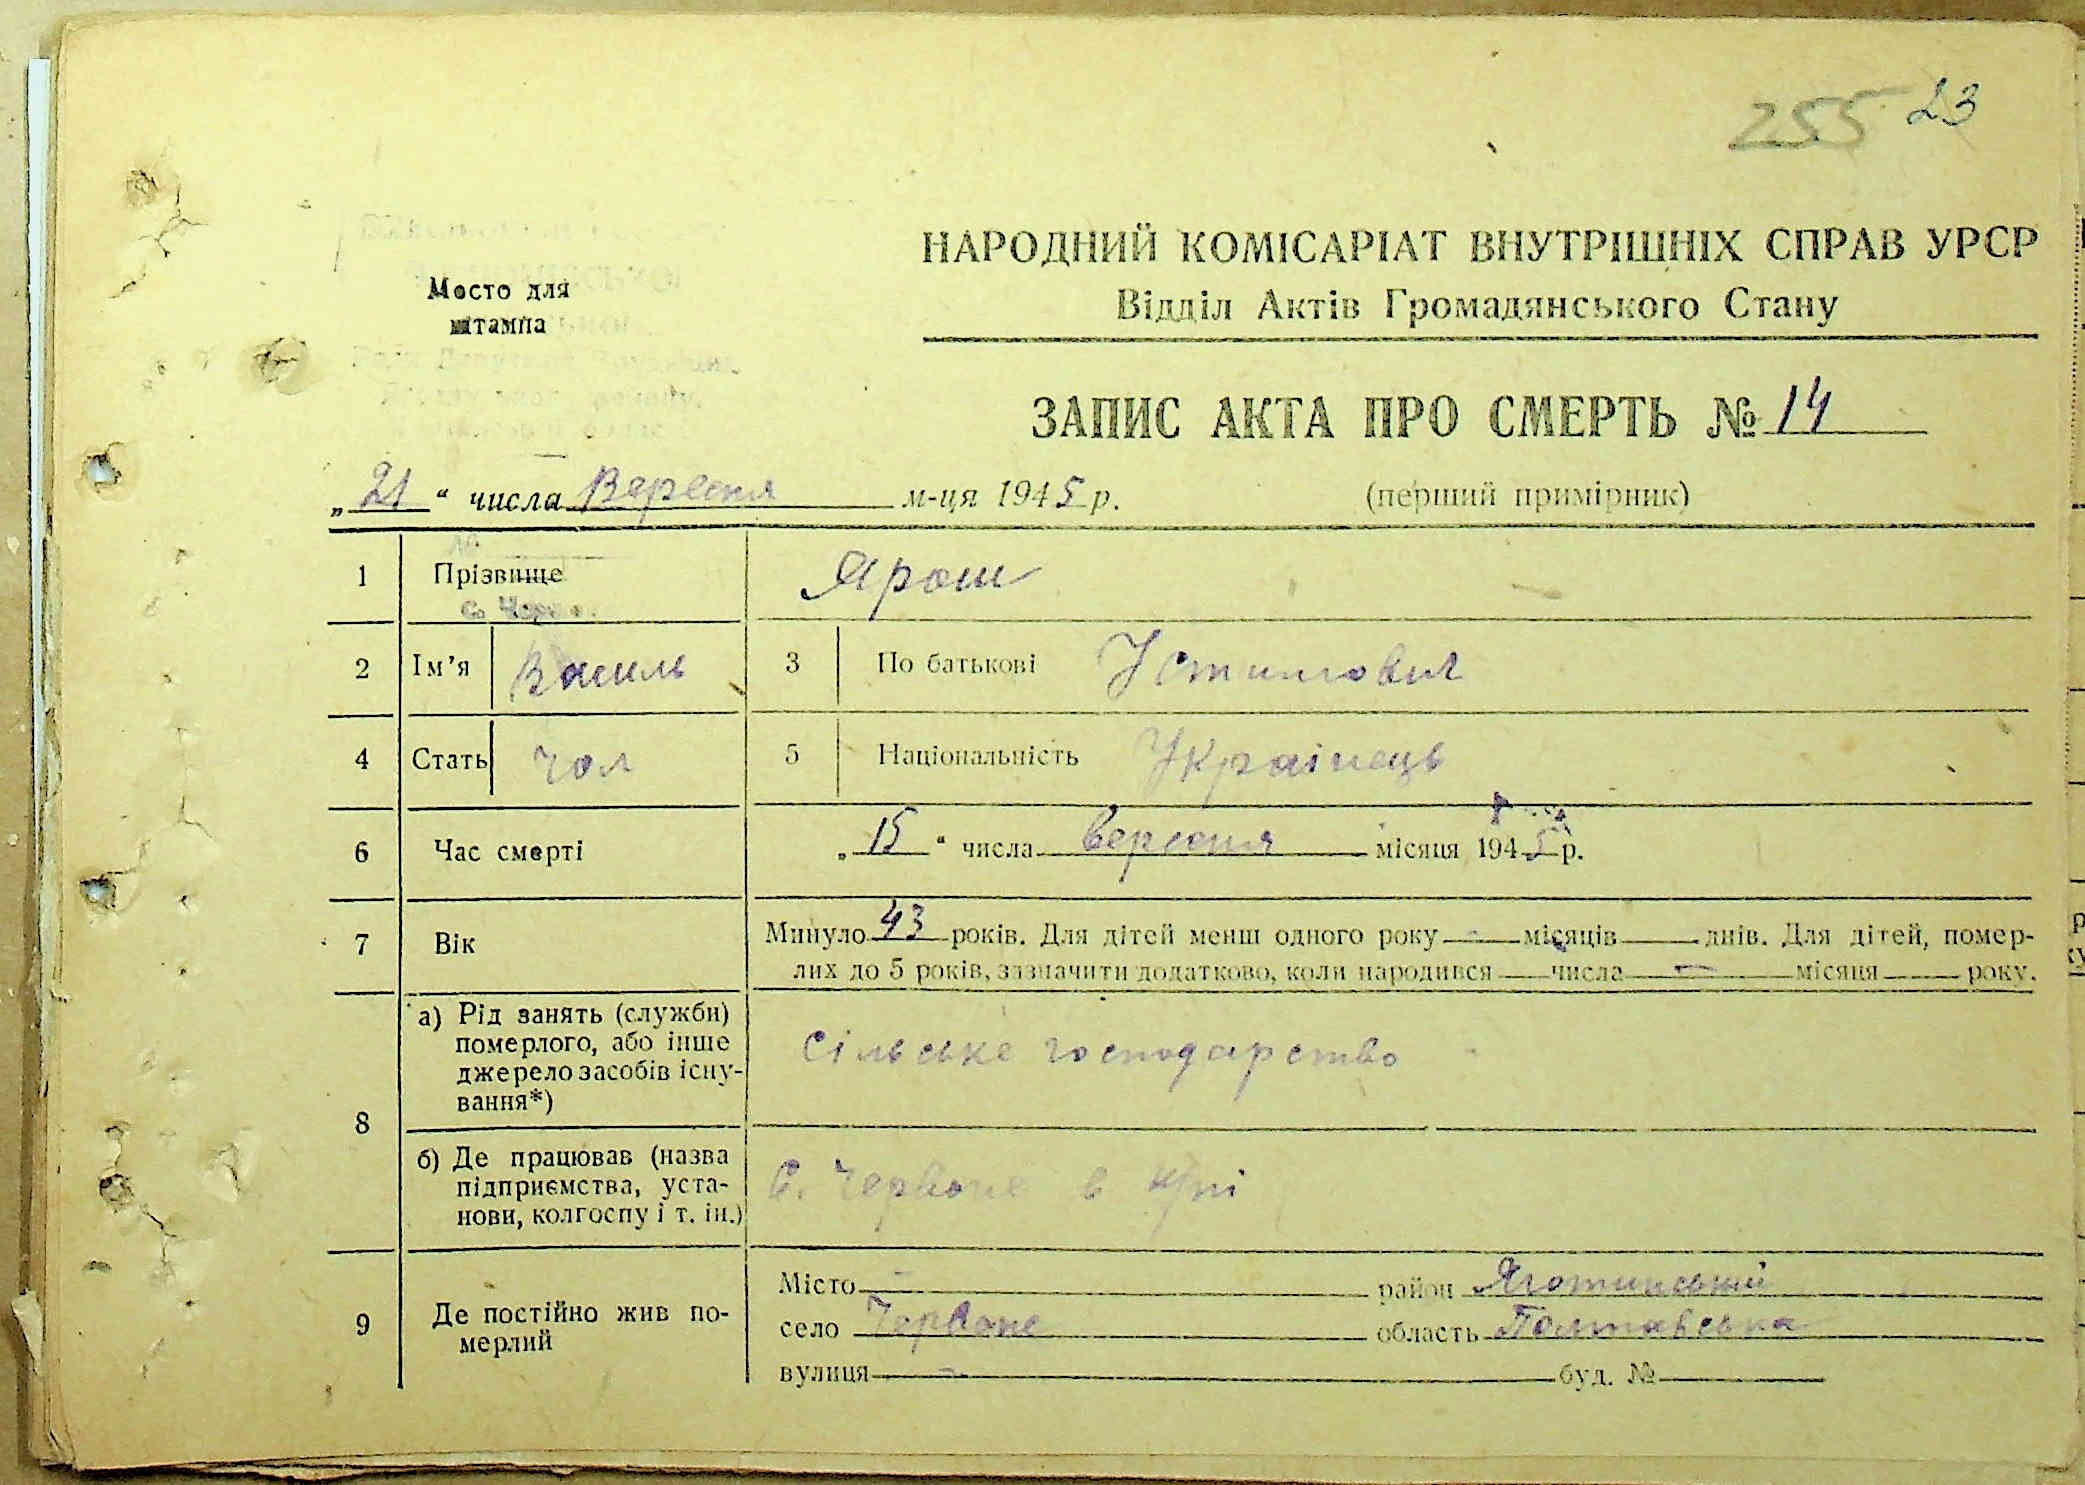 255 23
НАРОДНИЙ КОМІСАРІАТ ВНУТРІШНІХ СПРАВ УРСР
Відділ Актів Громадянського Стану
Место для
штампа
ЗАПИС АКТА ПРО СМЕРТЬ № 14
„21“ числа Вересня м-ця 1945 р.
(перший примірник)
1 Прізвище Ярош
2 Ім’я Василь 3 По батькові Устимович
4 Стать чол 5 Національність Українець
6 Час смерті „15“ числа вересня місяця 1945 р.
7 Вік Минуло 43 років. Для дітей менш одного року - місяців днів. Для дітей, помер-
лих до 5 років, зазначити додатково, коли народився числа - місяця року.
8 а) Рід занять (служби)
померлого, або інше
джерело засобів існу-
вання*)
Сільське господарство
б) Де працював (назва
підприємства, уста-
нови, колгоспу і т. ін.)
С. Червоне в
9 Де постійно жив по-
мерлий
Місто - район Яготинський
село Червоне область Полтавська
вулиця - буд. №